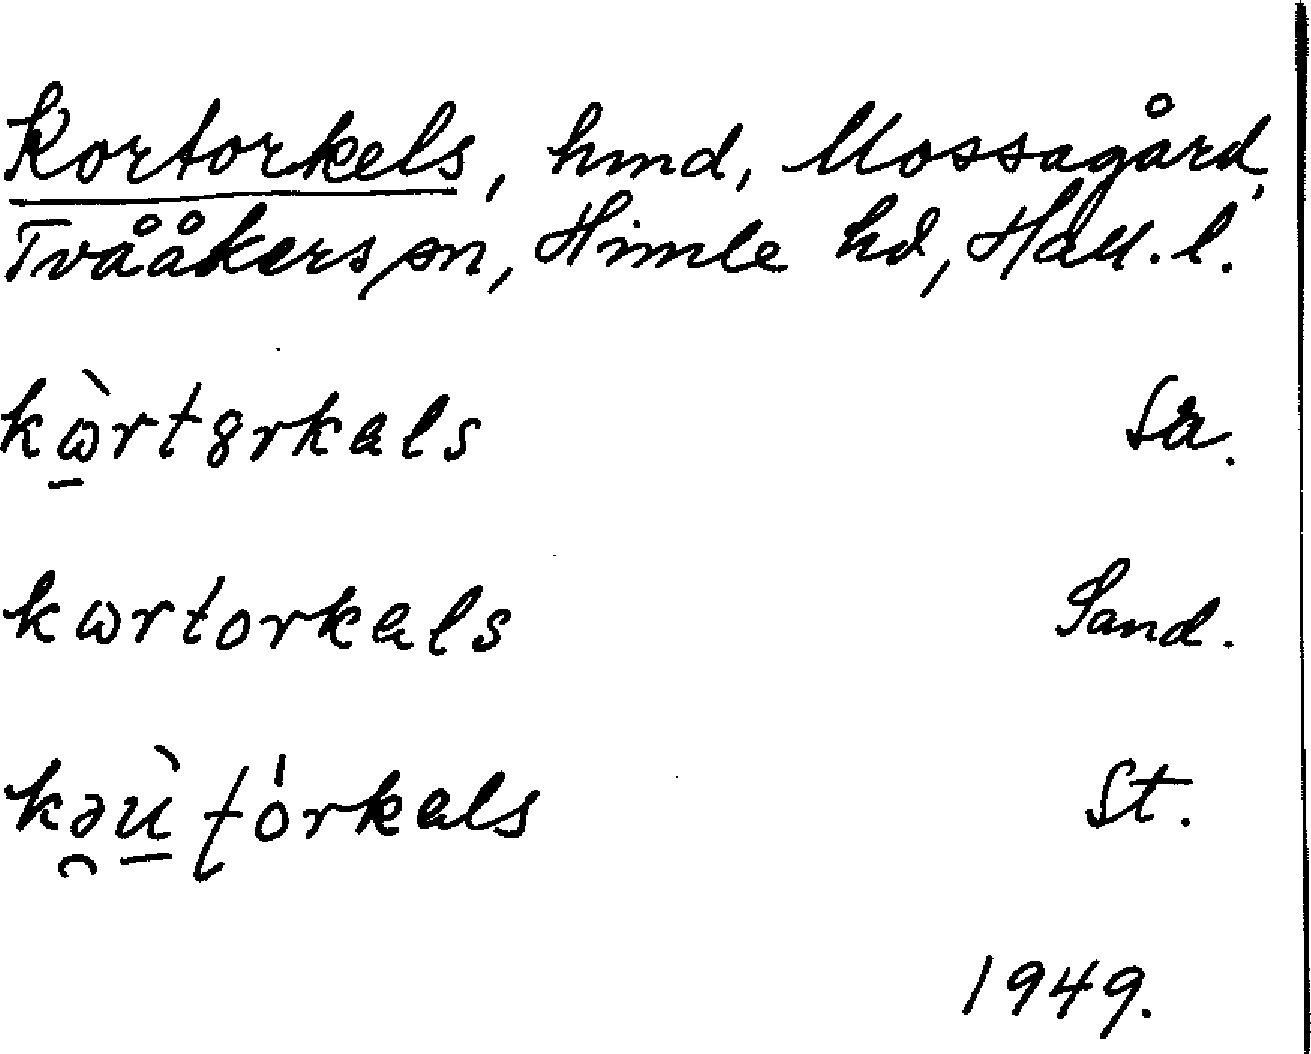 Kortorkels, hmd, Mossagård,
Tvååkers sn, Himle hd, Hall. l.
kὼ̱rt8rkəls Så.
kωrtorkəls Sand.
kə̯ṳ̀ ƫórkəls St.
1949.